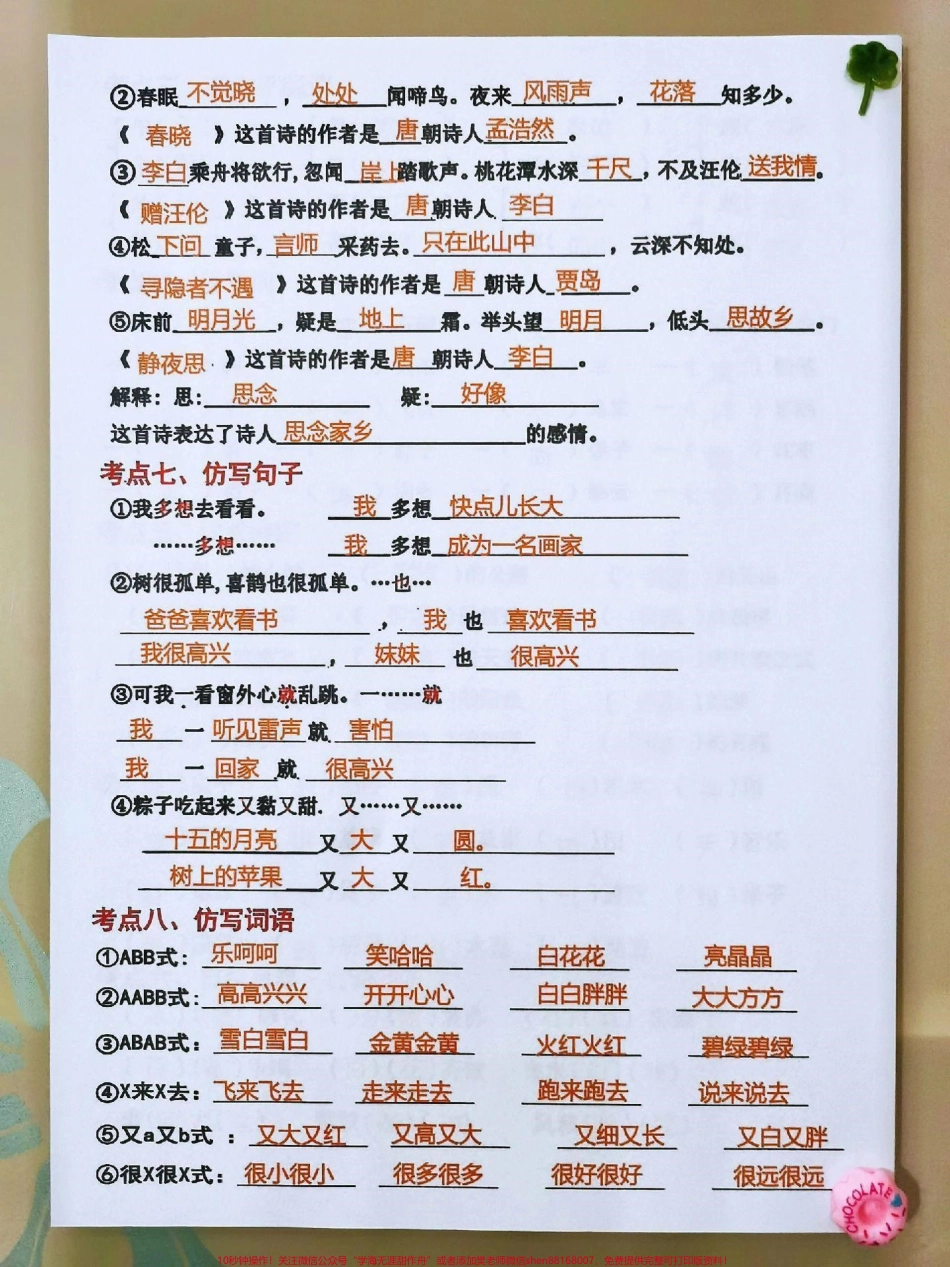 ②春眠不觉晓，处处闻啼鸟。夜来风雨声，花落知多少。
《春晓》这首诗的作者是唐朝诗人孟浩然。
③李白乘舟将欲行,忽闻岸上踏歌声。桃花潭水深千尺，不及汪伦送我情。
《赠汪伦》这首诗的作者是唐朝诗人李白
④松下问童子，言师采药去。只在此山中，云深不知处。
《寻隐者不遇》这首诗的作者是唐朝诗人贾岛。
⑤床前明月光，疑是地上霜。举头望明月，低头思故乡。
《静夜思》这首诗的作者是唐朝诗人李白。
解释：思：思念 疑：好像
这首诗表达了诗人思念家乡的感情。
考点七、仿写句子
①我多想去看看。 我多想快点儿长大
……多想…… 我多想成为一名画家
②树很孤单,喜鹊也很孤单。…也…
爸爸喜欢看书，我也喜欢看书
我很高兴，妹妹也很高兴
③可我一看窗外心就乱跳。一……就
我一听见雷声就害怕
我一回家就很高兴
④粽子吃起来又黏又甜. 又……又……
十五的月亮又大又圆。
树上的苹果又大又红。
考点八、仿写词语
①ABB式：乐呵呵 笑哈哈 白花花 亮晶晶
②AABB式：高高兴兴 开开心心 白白胖胖 大大方方
③ABAB式：雪白雪白 金黄金黄 火红火红 碧绿碧绿
④X来X去：飞来飞去 走来走去 跑来跑去 说来说去
⑤又a又b式：又大又红 又高又大 又细又长 又白又胖
⑥很X很X式：很小很小 很多很多 很好很好 很远很远
CHOCOLATE
10秒钟操作！关注微信公众号“学海无涯甜作舟”或者添加奖老师微信shen88168007，免费提供完整可打印版资料！